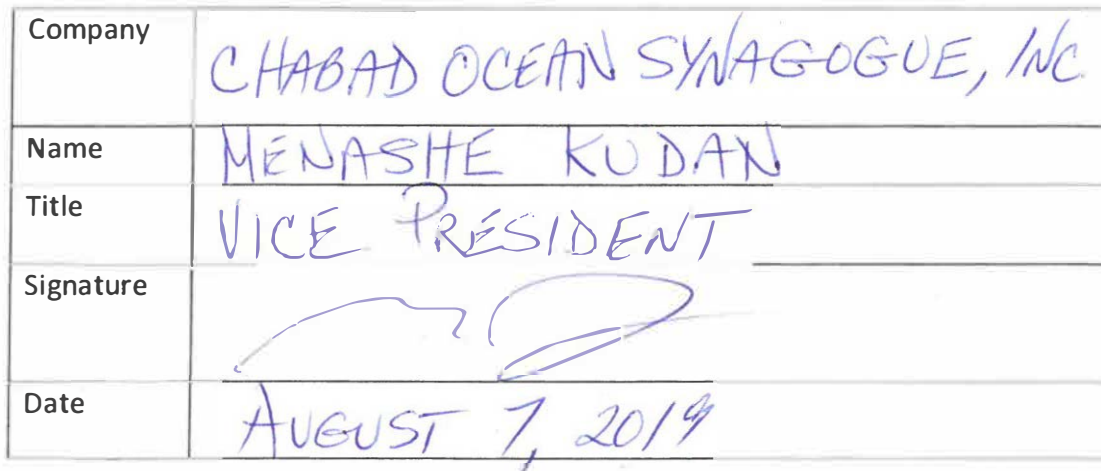 Company CHABAD OCEAN SYNAGOGUE, INC
Name MENASHE KUDAN
Title VICE PRESIDENT
Signature
Date AUGUST 7, 2019